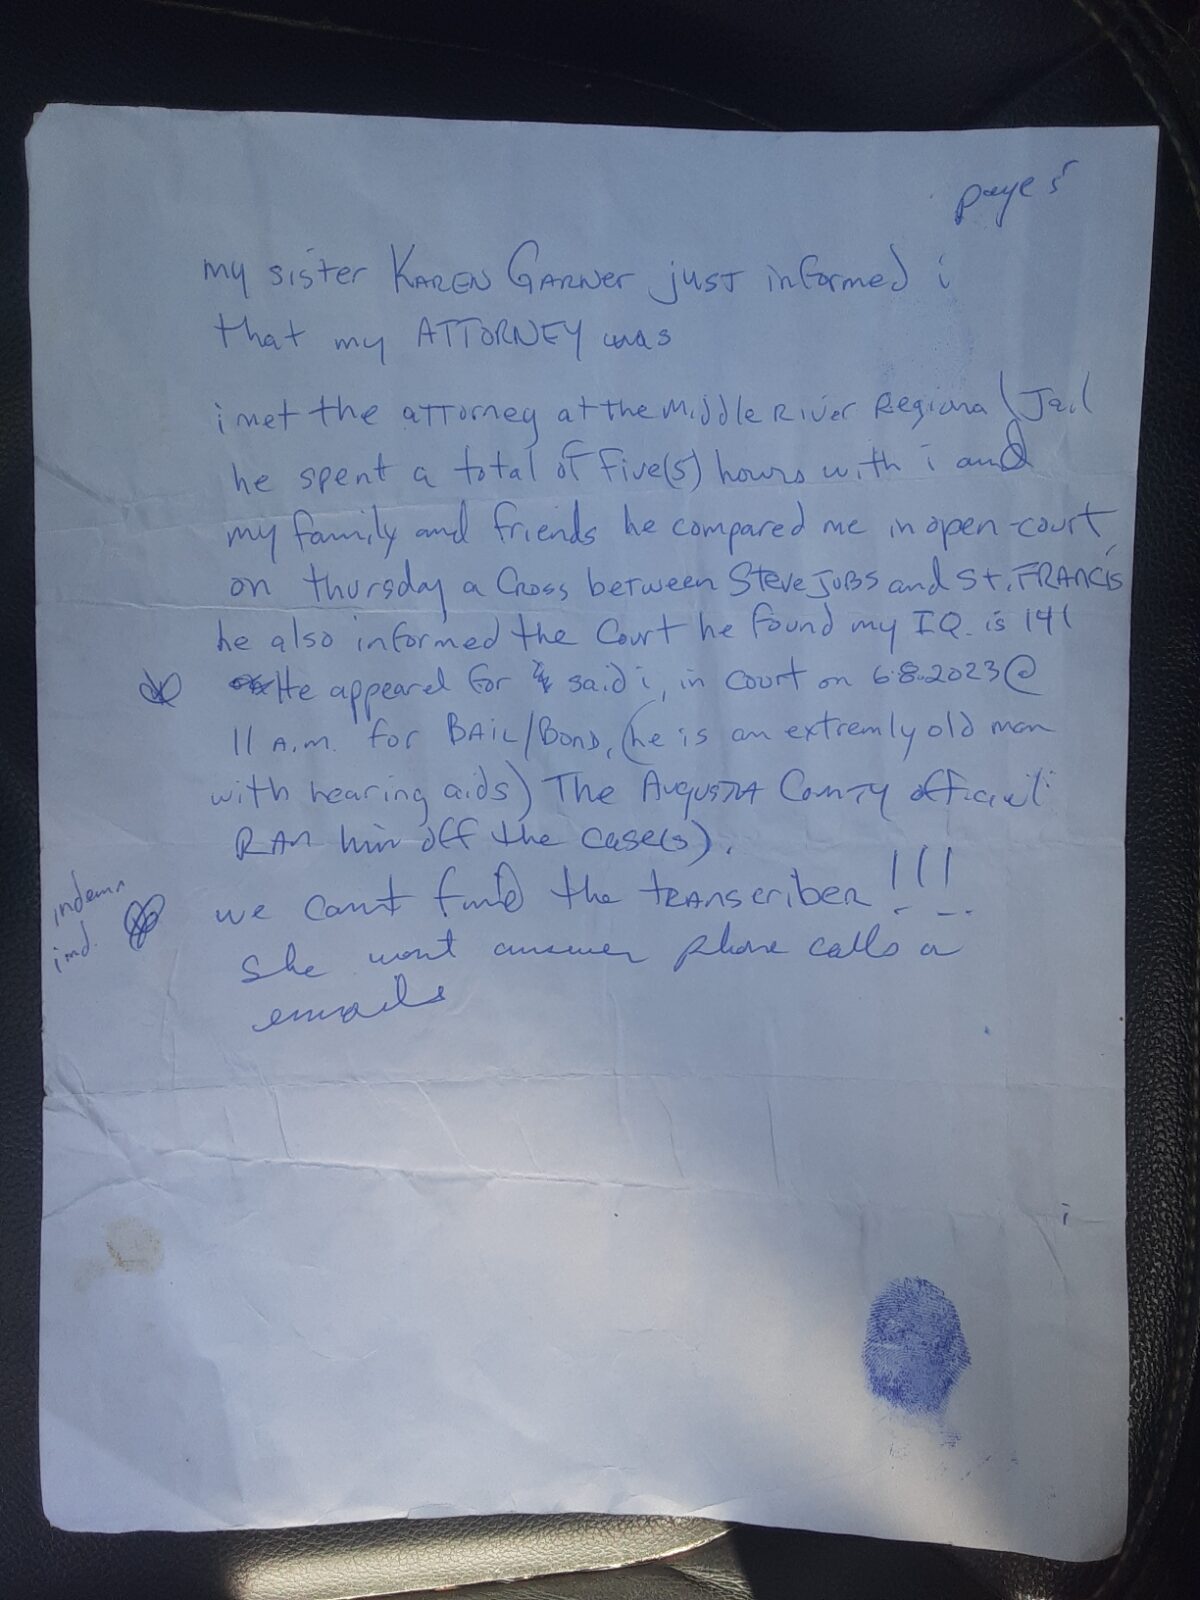 page 5
my sister KAREN GARNER just informed i
that my ATTORNEY was
i met the attorney at the Middle River Regional Jail
he spent a total of five(5) hours with i and
my family and friends he compared me in open-court
on thursday a Cross between Steve JOBS and St. FRANCIS
he also informed the Court he found my I.Q. is 141
He appeared for said i, in court on 6.8.2023@
11 A.m. for BAIL/BOND, (he is an extremly old man
with hearing aids) The AUGUSTA COUNTY official
RAN him off the case(s).
we cant find the TRANSCRIBER!!!
She wont answer phone calls or
emails
ind.
i